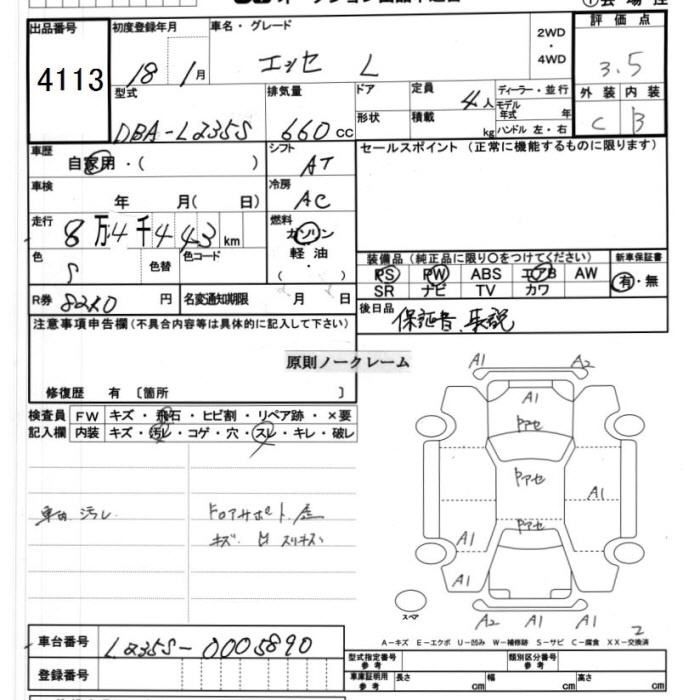 出品番号
4113
初度登録年月
18 1月
車名・グレード
エッセ L
2WD
・
4WD
評価点
3.5
型式
DBA-L235S
排気量
660 cc
ドア
形状
定員
4人
積載
kg
ディーラー・並行
モデル
年式 年
ハンドル 左・右
外装 内装
C B
車歴
自家用・( )
シフト
AT
セールスポイント (正常に機能するものに限ります)
車検
年 月( 日)
冷房
AC
走行
8万4千443km
燃料
ガソリン
軽油
( ・ )
色
S
色替
色コード
装備品(純正品に限り〇をつけてください)
PS PW ABS エアB AW
SR ナビ TV カワ
新車保証書
有・無
R券 8210 円
名変通知期限 月 日
後日品
保証書、取説
注意事項申告欄(不具合内容等は具体的に記入して下さい)
原則ノークレーム
修復歴 有 〔箇所 〕
検査員
記入欄
FW キズ・飛石・ヒビ割・リペア跡・×要
内装 キズ・汚レ・コゲ・穴・スレ・キレ・破レ
車内汚レ
ドアサポート
キズ
A1 A2
A1
アセ
アセ
A1
アセ
A1
A1
A1
スペア
A2 A1 A1
2
A-キズ E-エクボ U-凹み W-補修跡 S-サビ C-腐食 XX-交換済
車台番号
L235S-0005890
登録番号
型式指定番号
参考
類別区分番号
参考
車庫証明用
参考
長さ cm
幅 cm
高さ cm